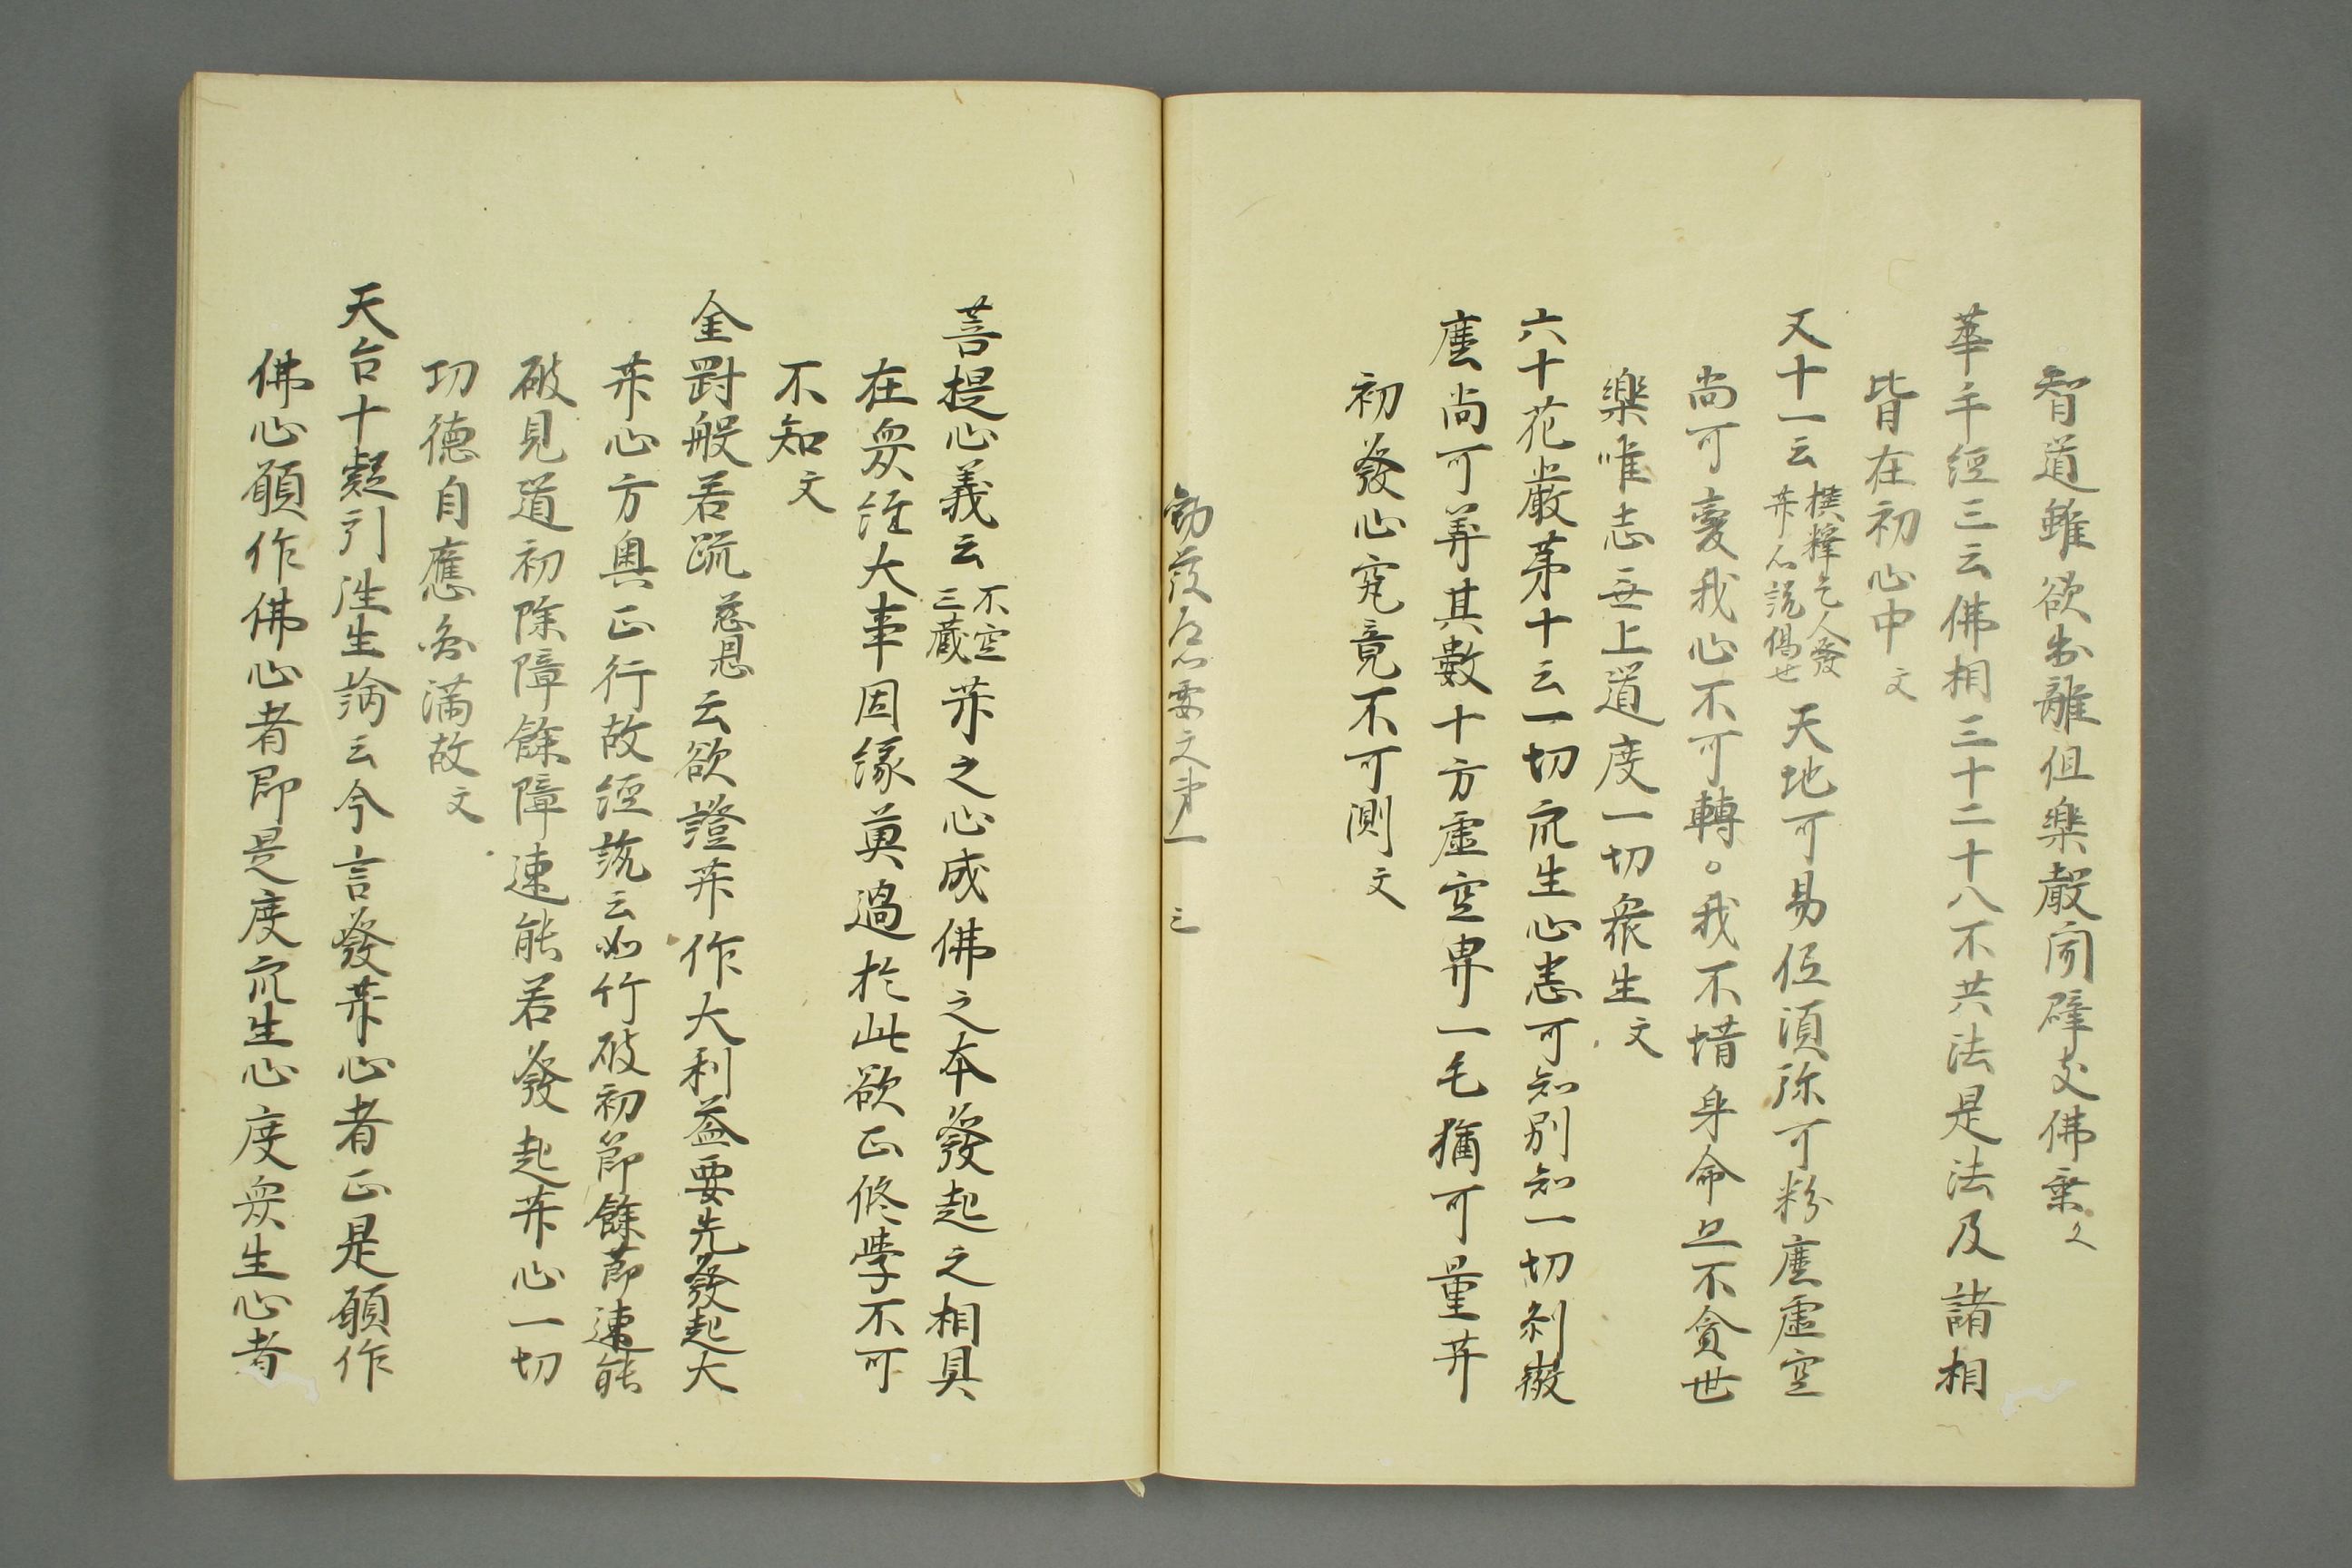 智道雖欲出離但樂聲聞辟支佛乗文
華手經三云佛相三十二十八不共法是法及諸相
皆在初心中文
又十一云撲釋乞人發
菩心説偈也天地可易位須弥可粉塵虚空
尚可變我心不可轉。我不惜身命旦不貪世
樂唯志无上道度一切衆生文
六十花嚴第十云一切众生心悉可知別知一切刹微
塵尚可筭其數十方虚空界一毛猶可量菩
初發心究竟不可測文
勧發心要文第一 三
菩提心義云不空
三蔵𦬇之心成佛之本發起之相具
在衆経大事因縁莫過於此欲正修學不可
不知文
金罸般若疏慈恩云欲證𦬇作大利益要先發起大
𦬇心方興正行故經説云如竹破初節餘節速能
破見道初除障餘障速能若發起𦬇心一切
功德自應圓満故文
天台十疑引往生論云今言發𦬇心者正是願作
佛心願作佛心者即是度众生心度衆生心者